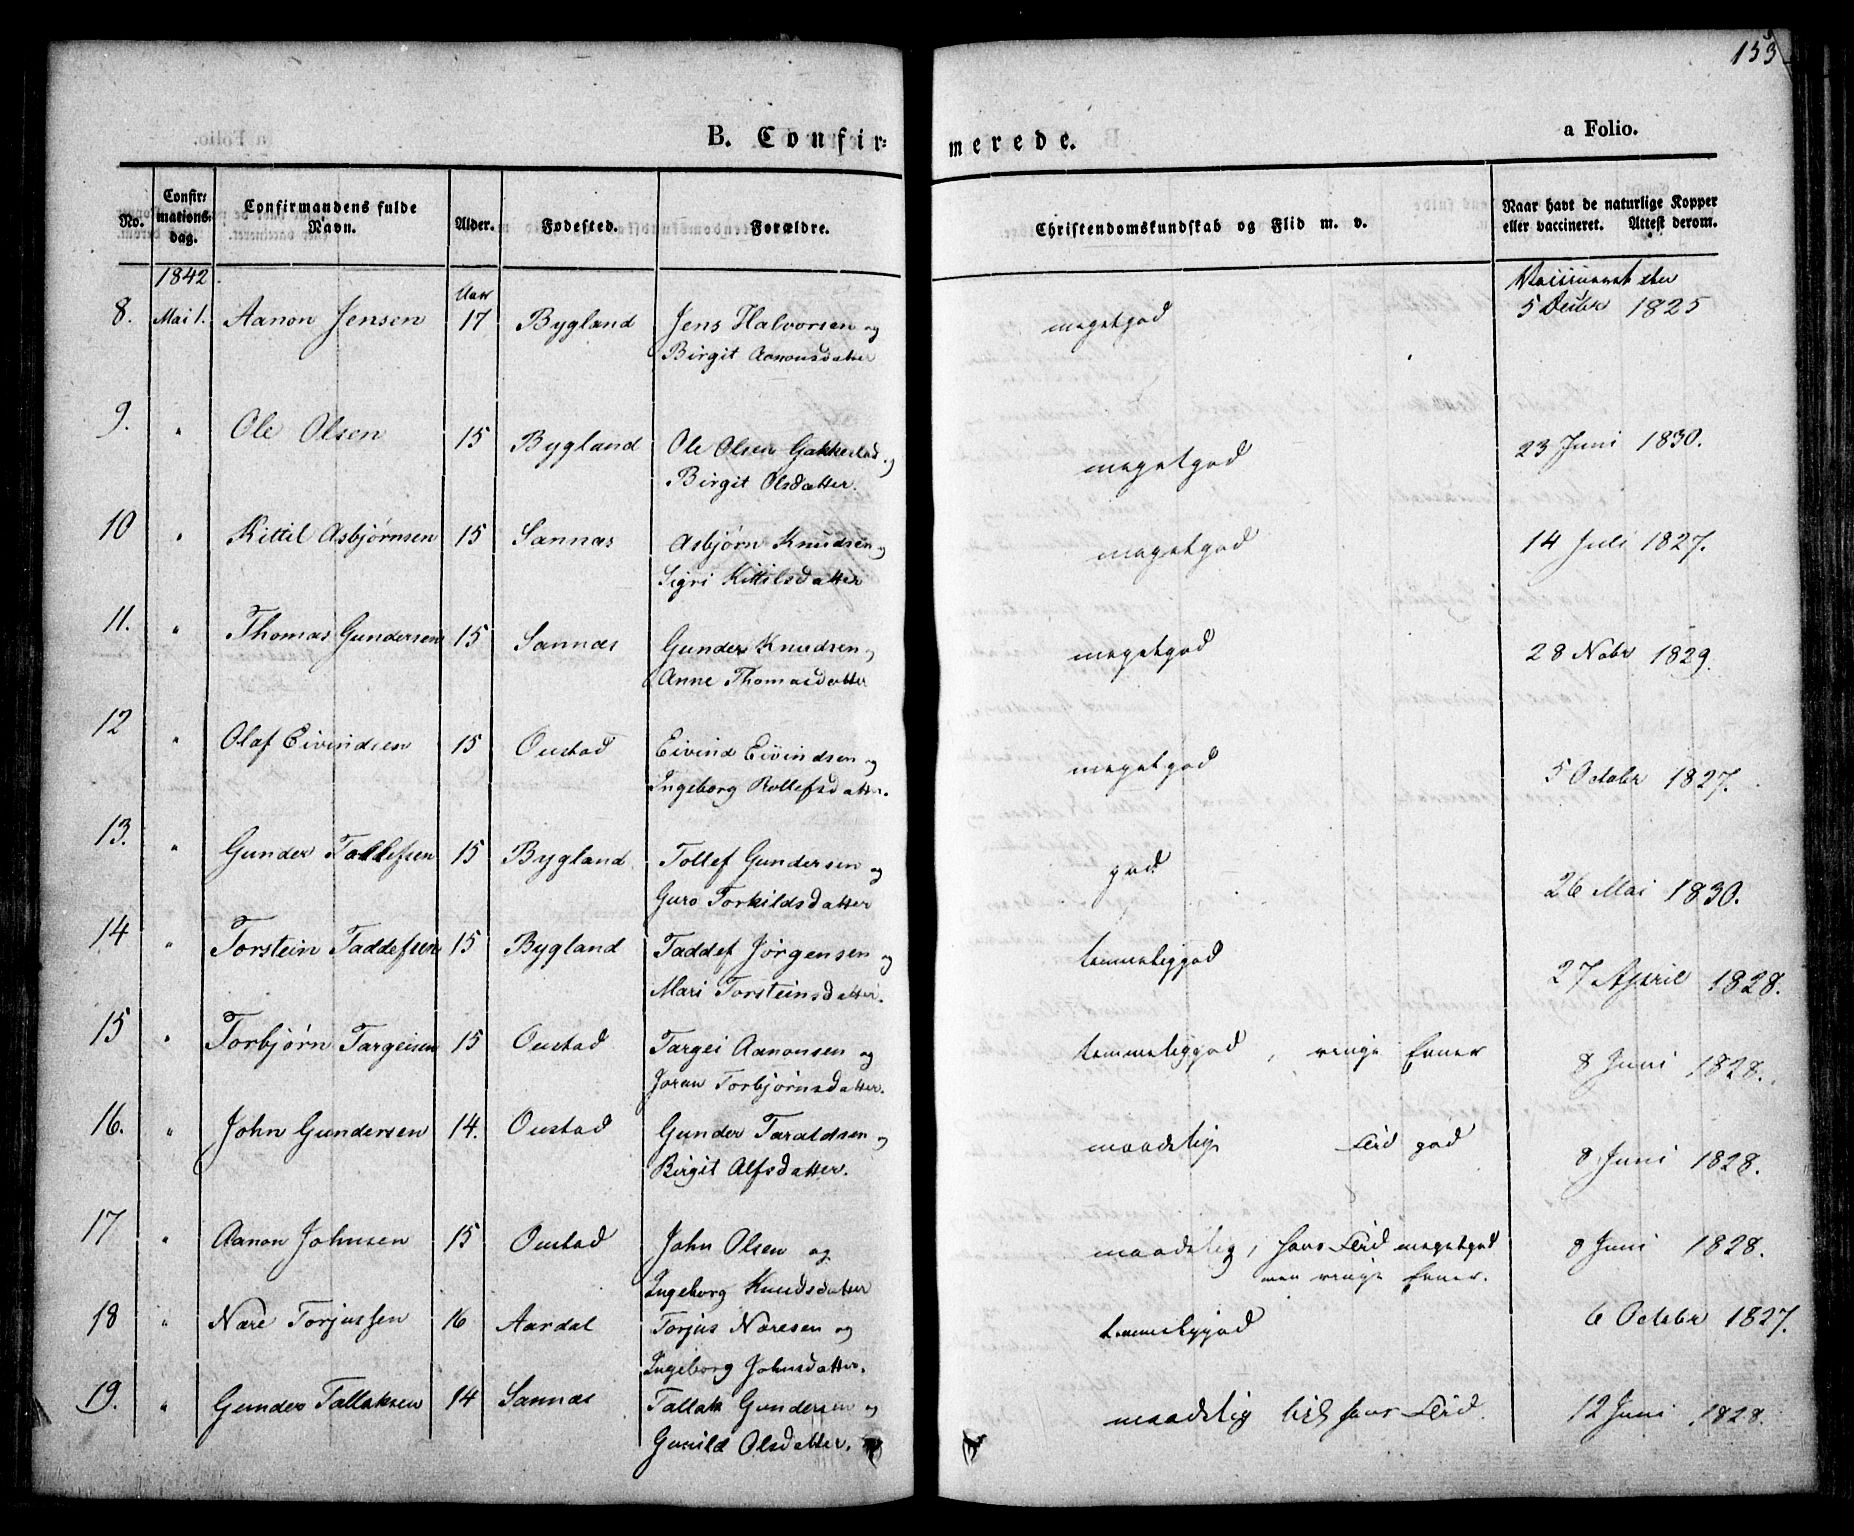 153
B. Confir=
merede.
a Folio.
No.
Confir=
mations=
dag.
Confirmandens fulde
Navn.
Alder.
Fødested.
Forældre.
Christendomskundskab og Flid m. v.
Naar havt de naturlige Kopper
eller vaccineret. Attest derom.
1842.
Aar
Vaccineret den
8. Mai 1. Aanon Jensen 17 Bygland Jens Halvorsen og megetgod 5 Decbr 1825
Birgit Aanonsdatter
9. " Ole Olsen 15 Bygland Ole Olsen og megetgod 23 Juni 1830.
Birgit Olsdatter.
10 " Kittil Asbjørnsen 15 Sannæs Asbjørn Knudsen og megetgod 14 Juli 1827.
Sigri Kittilsdatter
11. " Thomas Gundersen 15 Sannæs Gunder Knudsen og megetgod 28 Nobr 1829.
Anne Thomasdatter
12 " Olaf Eivindsen 15 Oustad Eivind Eivindsen og megetgod 5 Octobr 1827.
Ingeborg Rollefsdatter.
13. " Gunder Tollefsen 15 Bygland Tollef Gundersen og god 26 Mai 1830.
Guro Torkildsdatter
14 " Torstein Taddefsen 15 Bygland Taddef Jørgensen og temmeliggod 27 April 1828.
Mari Torsteinsdatter.
15 " Torbjørn Targeisen 15 Oustad Targei Aanonsen og temmeliggod, ringe Evner 8 Juni 1828.
Joran Torbjørnsdatter.
16. " John Gundersen 14. Oustad Gunder Taraldsen og maadelig Flid god 8 Juni 1828.
Birgit Alfsdatter.
17 " Aanon Johnsen 15 Oustad John Olsen og maadelig, hans Flid megetgod 8 Juni 1828.
men ringe Evner.
Ingeborg Knudsdatter
18 " Nare Torjussen 16 Aardal Torjus Naresen og temmeliggod 6 Octobr 1827.
Ingeborg Johnsdatter.
19. " Gunder Tallaksen 14 Sannæs Tallak Gundersen og maadelig hans Flid. 12 Juni 1828.
Gunild Olsdatter.